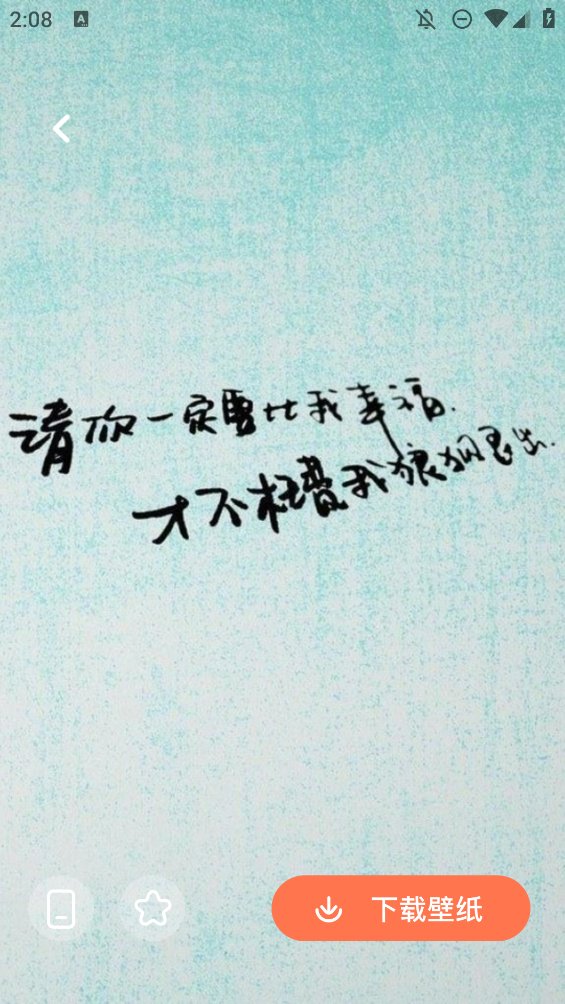 2:08
请你一定要比我幸福.
才不枉费我狼狈退出.
下载壁纸